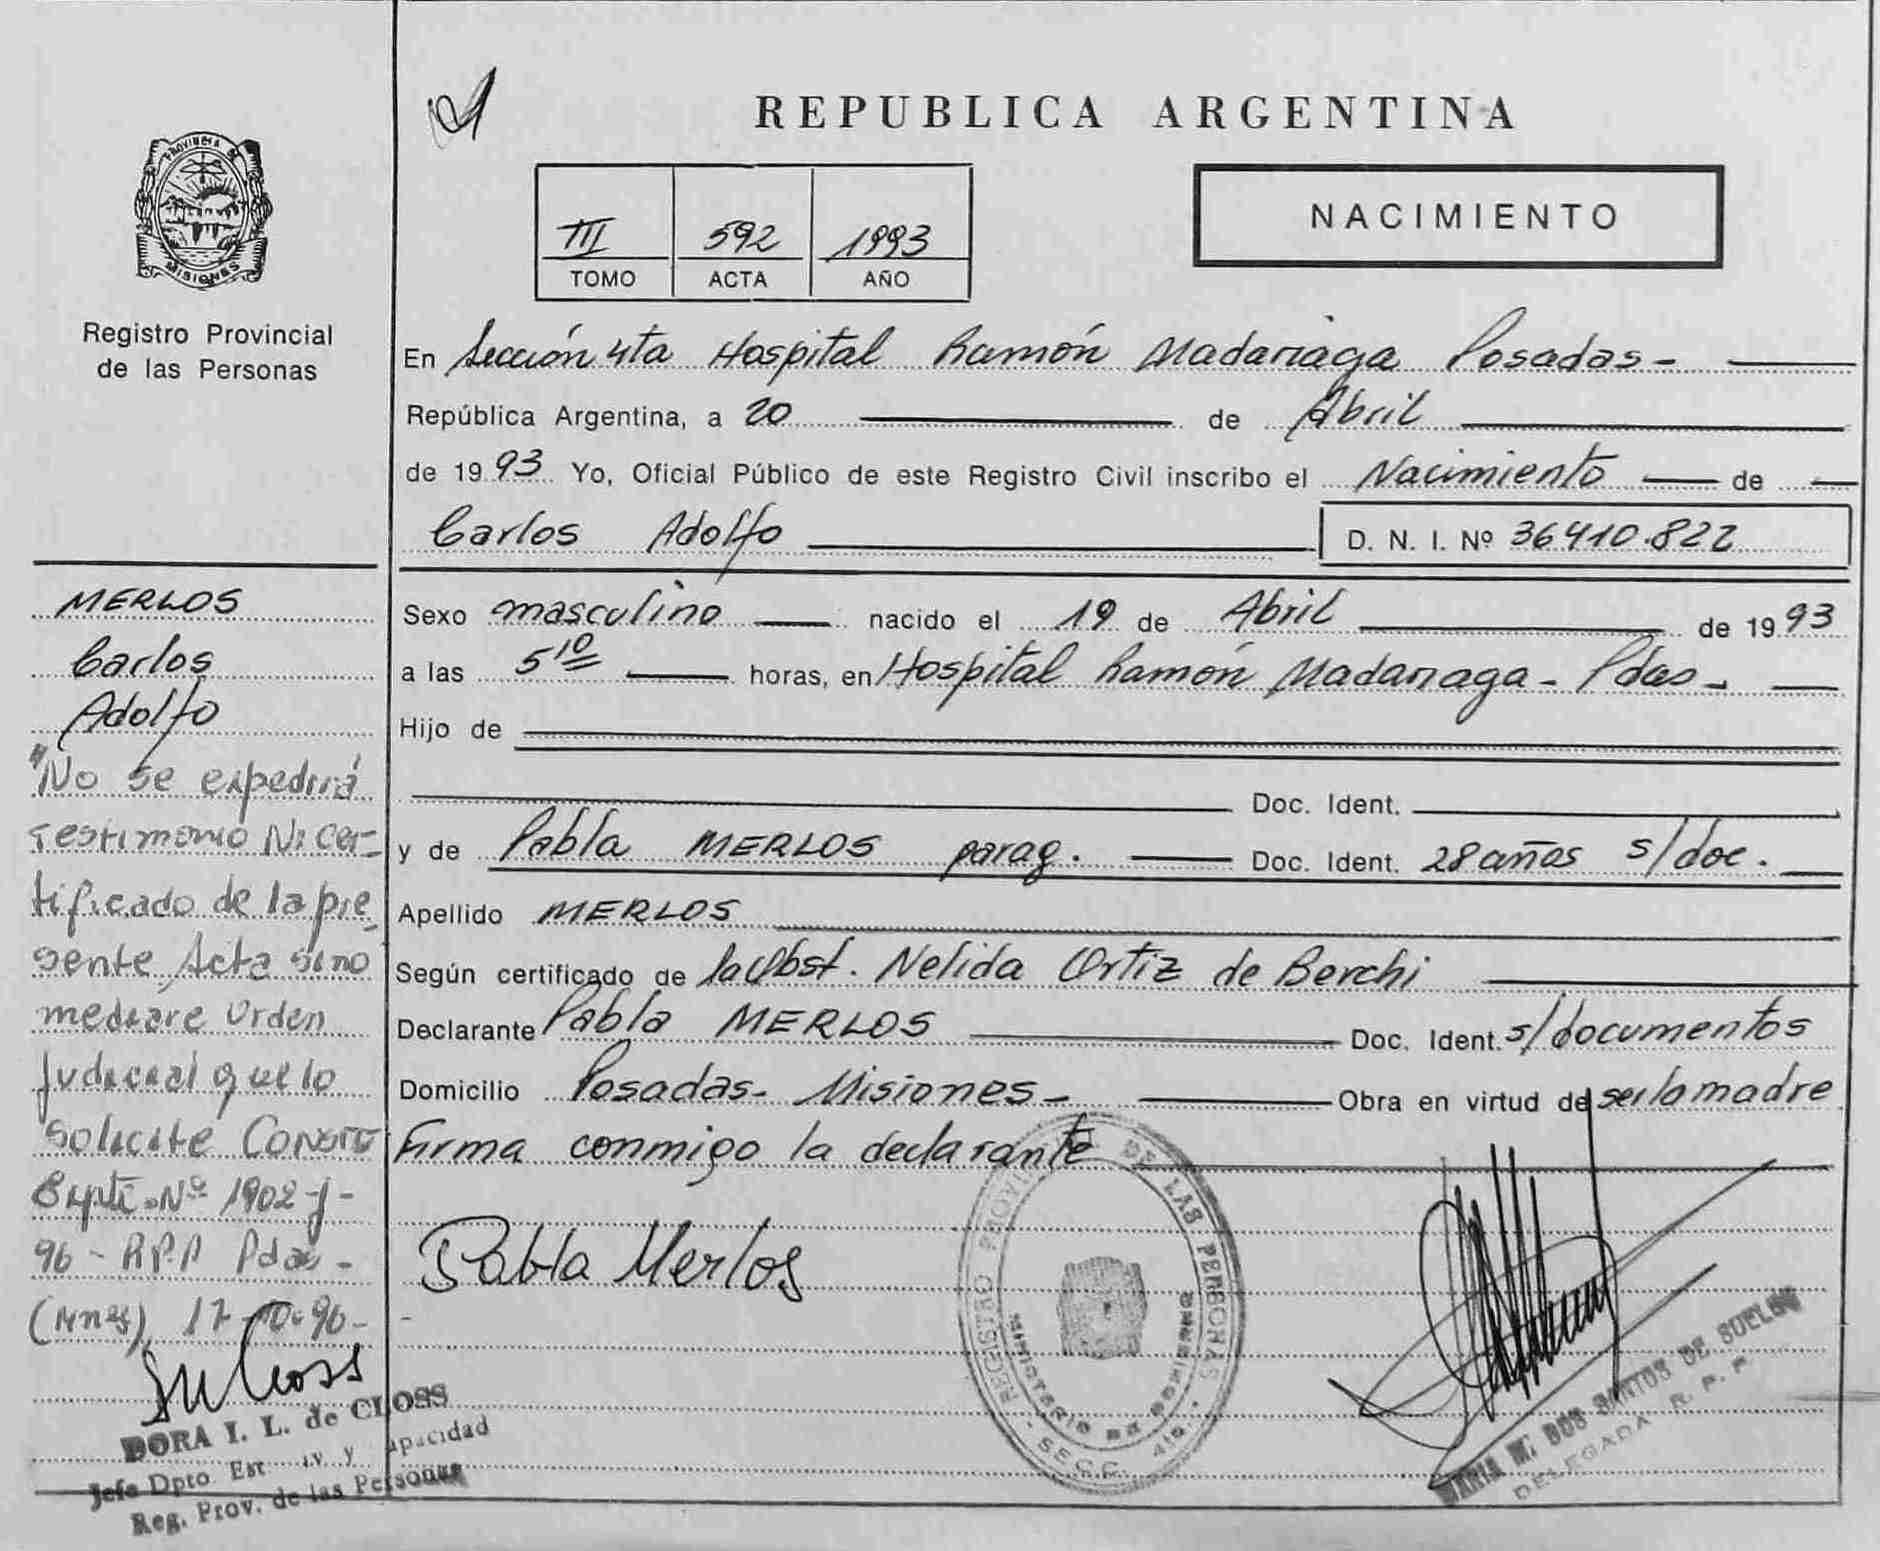 REPUBLICA ARGENTINA
PROVINCIA DE
MISIONES
Registro Provincial
de las Personas
III 592 1993
TOMO ACTA AÑO
NACIMIENTO
En Sección 4ta Hospital Ramón Madariaga Posadas-
República Argentina, a 20 de Abril
de 1993 Yo, Oficial Público de este Registro Civil inscribo el Nacimiento de
Carlos Adolfo D. N. I. Nº 36410.822
Sexo masculino nacido el 19 de Abril de 1993
a las 5 10 horas, en Hospital Ramón Madariaga - Pdas -
Hijo de
Doc. Ident.
y de Pabla MERLOS parag. Doc. Ident. 28 años s/doc.
Apellido MERLOS
Según certificado de la Obst. Nelida Ortiz de Berchi
Declarante Pabla MERLOS Doc. Ident. s/documentos
Domicilio Posadas- Misiones- Obra en virtud de ser la madre
Firma conmigo la declarante
Pabla Merlos
MERLOS
Carlos
Adolfo
"No se expedirá
Testimonio Ni cer-
tificado de la pre-
sente Acta sino
mediare Orden
Judicial que lo
solicite Conste
Expte. Nº 1902-J-
96- R.P.P Pdas-
(Mnes), 17-10-96-
DORA I. L. de CLOSS
Jefe Dpto Est. Civ. y Capacidad
Reg. Prov. de las Personas
REGISTRO PROVINCIAL DE LAS PERSONAS
MINISTERIO DE GOBIERNO
SECC. 4ta.
MARIA M. DOS SANTOS DE SUELOS
DELEGADA R. P. P.